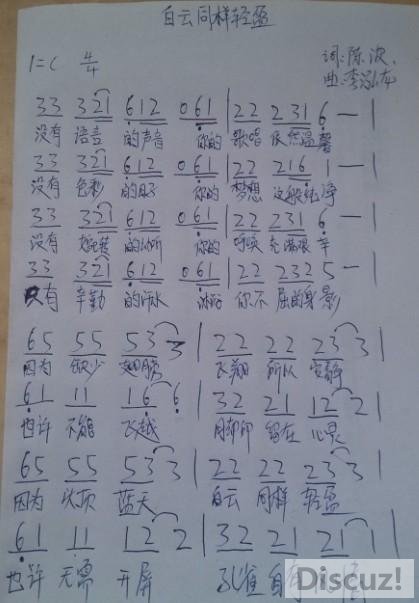 白云同样轻盈
1=C 4/4 词:陈波
曲:李泓左
33 321 612 061 | 22 231 6 — |
没有 语言 的声音 你的 歌唱 依然温馨
33 321 612 061 | 22 216 1 — |
没有 色彩 的日子 你的 梦想 这般纯净
33 321 612 061 | 22 231 6 — |
没有 你的 呼唤 充满艰辛
33 321 612 061 | 22 232 5 — |
只有 辛勤 的汗水 沐浴 你不 屈的身影
65 55 53 3 | 22 22 23 3 |
因为 缺少 翅膀 飞翔 所以 安静
61 11 16 6 | 32 21 12 2 |
也许 不能 飞越 留在 心灵
65 55 53 3 | 22 22 23 3 |
因为 头顶 蓝天 白云 同样 轻盈
61 11 12 2 | 32 21 21 1 |
也许 无需 开屏 孔雀 自有
Discuz!